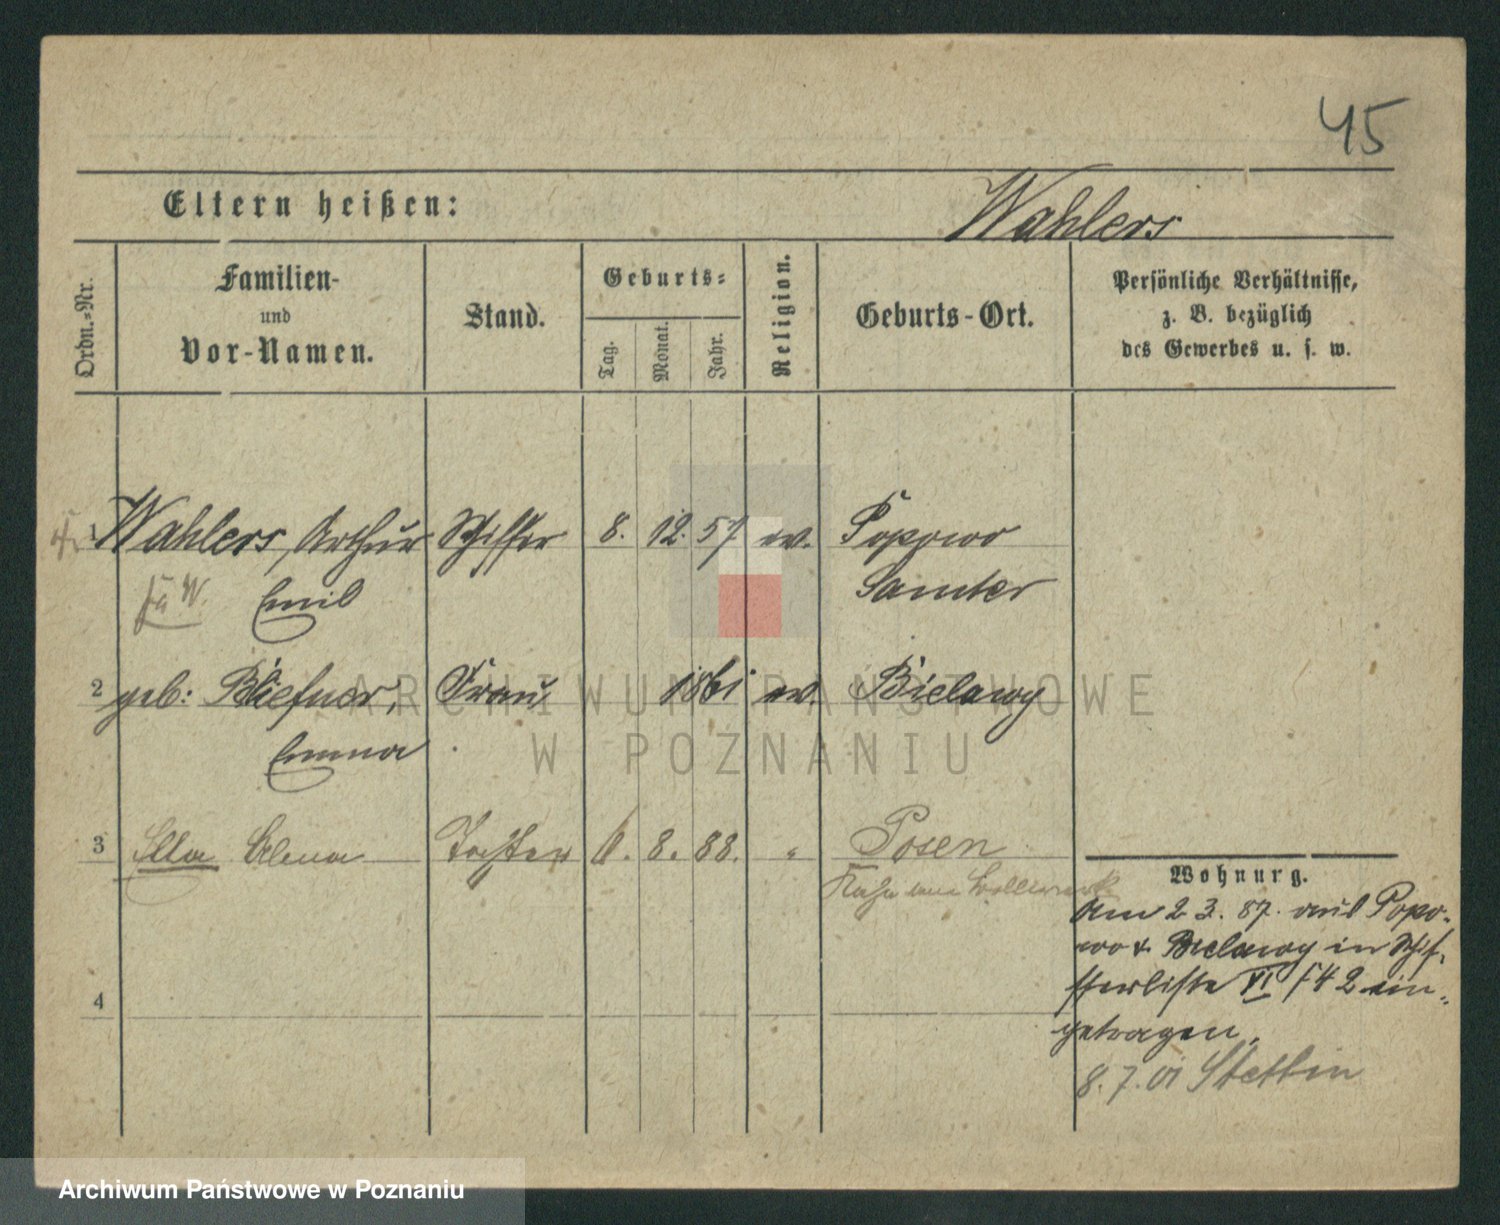 45
Eltern heißen:
Wahlers
Ordn.-Nr.
Familien-
und
Vor-Namen.
Stand.
Geburts-
Tag.
Monat.
Jahr.
Religion.
Geburts-Ort.
Persönliche Verhältnisse,
z. B. bezüglich
des Gewerbes u. s. w.
1 Wahlers, Arthur Schiffer 8. 12. 57 ev. Popowo
Emil Samter
2 geb: Frau 1861 ev. Bielawy
Emma
3 Tochter 8. 88. " Posen
Wohnung.
Am 2 3. 87. aus Popo-
wo & Bielawy in Schif-
ferliste VI f 42 ein-
getragen.
4
8. 7. 01 Stettin
ARCHIWUM PAŃSTWOWE
W POZNANIU
Archiwum Państwowe w Poznaniu